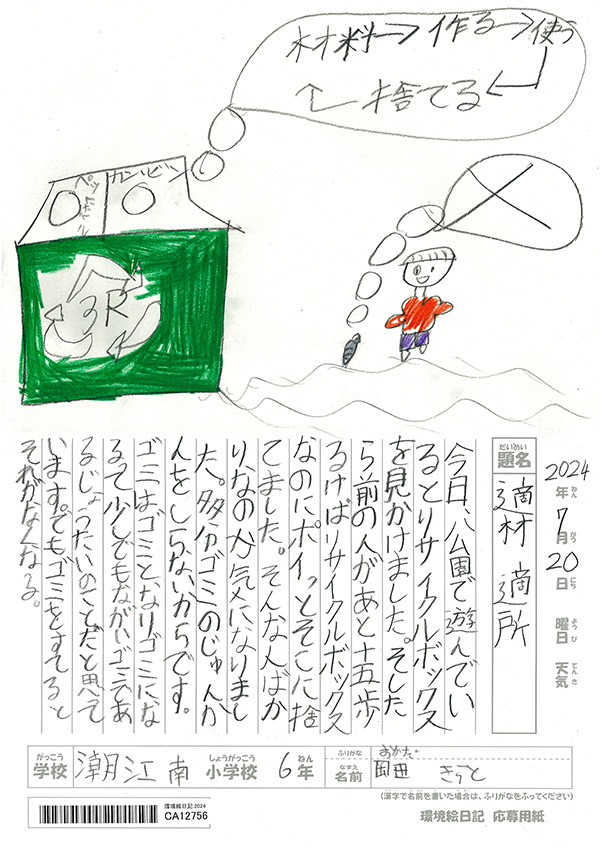 材料→作る→使う
↑←捨てる←
ペットボトル
カン・ビン
3R
2024年ねん
7月がつ
20日にち
曜日ようび
天気てんき
だいめい
題名
適材適所
今日、公園で遊んでい
るとリサイクルボックス
を見かけました。そした
ら前の人があと十五歩
るけばリサイクルボックス
なのにポイっとそこに捨
てました。そんな人ばか
りなのか気になりまし
た。多分ゴミのじゅんか
んをしらないからです。
ゴミはゴミと、なりゴミにな
るて少しでもながいゴミであ
るじょうたいのことだと思って
います。でもゴミをすてると
それがなくなる。
がっこう しょうがっこう ねん ふりがな おかだ
学校 潮江南 小学校 6年 なまえ 名前 岡田 きらと
(漢字で名前を書いた場合は、ふりがなをふってください)
環境絵日記2024
CA12756
環境絵日記 応募用紙